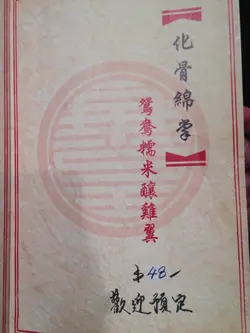 化骨綿掌
鴛鴦糯米釀雞翼
$48-
歡迎預定